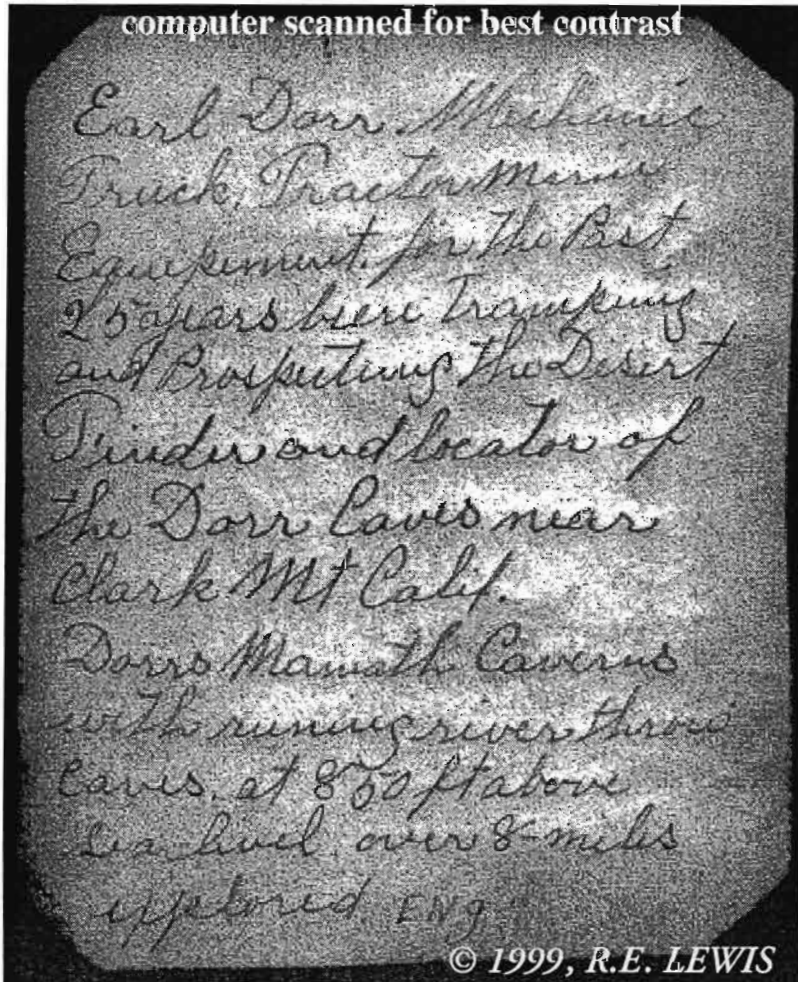 computer scanned for best contrast
Earl Dorr Mechanic
Truck, Tractor
Equipement, for the Past
25 years been Trampeing
and Prospecting the Desert
Finder and locator of
the Dorr Caves near
Clark Mt Calif.
Dorrs Mamath Caverns
with runing river throu
Caves, at 850 ft above
sea level over 8 miles
epplored ENg
© 1999, R.E. LEWIS